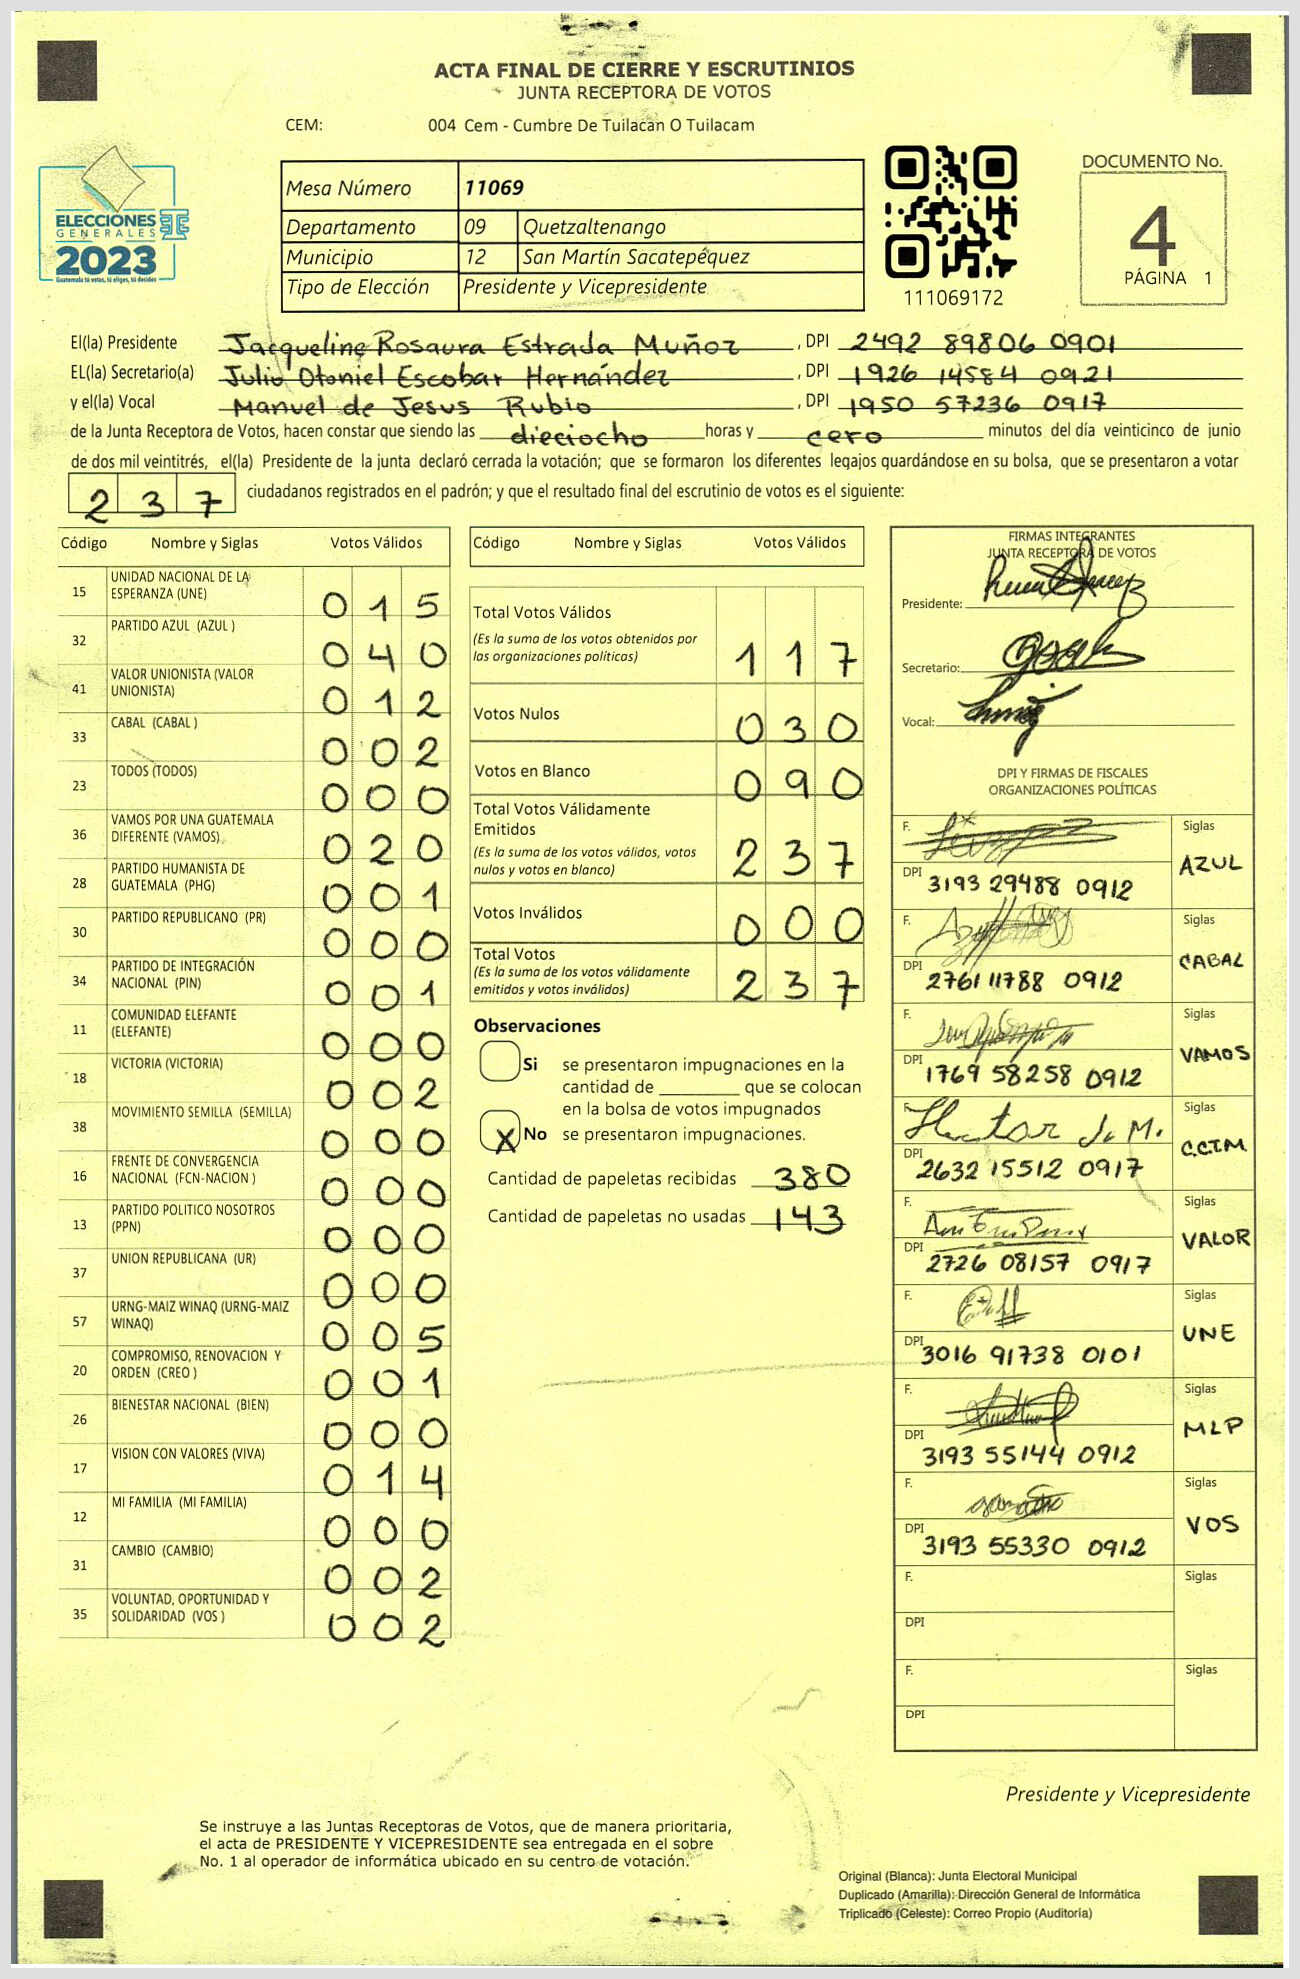 ACTA FINAL DE CIERRE Y ESCRUTINIOS
JUNTA RECEPTORA DE VOTOS
CEM: 004 Cem - Cumbre De Tuilacan O Tuilacam
ELECCIONES
GENERALES
2023
Guatemala tú votas, tú eliges, tú decides
Mesa Número 11069
Departamento 09 Quetzaltenango
Municipio 12 San Martín Sacatepéquez
Tipo de Elección Presidente y Vicepresidente
111069172
DOCUMENTO No.
4
PÁGINA 1
El(la) Presidente Jacqueline Rosaura Estrada Muñoz , DPI 2492 89806 0901
EL(la) Secretario(a) Julio Otoniel Escobar Hernández , DPI 1926 14584 0921
y el(la) Vocal Manuel de Jesus Rubio , DPI 1950 57236 0917
de la Junta Receptora de Votos, hacen constar que siendo las dieciocho horas y cero minutos del día veinticinco de junio
de dos mil veintitrés, el(la) Presidente de la junta declaró cerrada la votación; que se formaron los diferentes legajos quardándose en su bolsa, que se presentaron a votar
237 ciudadanos registrados en el padrón; y que el resultado final del escrutinio de votos es el siguiente:
Código Nombre y Siglas Votos Válidos
15 UNIDAD NACIONAL DE LA ESPERANZA (UNE) 015
32 PARTIDO AZUL (AZUL ) 040
41 VALOR UNIONISTA (VALOR UNIONISTA) 012
33 CABAL (CABAL ) 002
23 TODOS (TODOS) 000
36 VAMOS POR UNA GUATEMALA DIFERENTE (VAMOS) 020
28 PARTIDO HUMANISTA DE GUATEMALA (PHG) 001
30 PARTIDO REPUBLICANO (PR) 000
34 PARTIDO DE INTEGRACIÓN NACIONAL (PIN) 001
11 COMUNIDAD ELEFANTE (ELEFANTE) 000
18 VICTORIA (VICTORIA) 002
38 MOVIMIENTO SEMILLA (SEMILLA) 000
16 FRENTE DE CONVERGENCIA NACIONAL (FCN-NACION ) 000
13 PARTIDO POLITICO NOSOTROS (PPN) 000
37 UNION REPUBLICANA (UR) 000
57 URNG-MAIZ WINAQ (URNG-MAIZ WINAQ) 005
20 COMPROMISO, RENOVACION Y ORDEN (CREO ) 001
26 BIENESTAR NACIONAL (BIEN) 000
17 VISION CON VALORES (VIVA) 014
12 MI FAMILIA (MI FAMILIA) 000
31 CAMBIO (CAMBIO) 002
35 VOLUNTAD, OPORTUNIDAD Y SOLIDARIDAD (VOS ) 002
Código Nombre y Siglas Votos Válidos
Total Votos Válidos
(Es la suma de los votos obtenidos por
las organizaciones políticas) 117
Votos Nulos 030
Votos en Blanco 090
Total Votos Válidamente
Emitidos
(Es la suma de los votos válidos, votos
nulos y votos en blanco) 237
Votos Inválidos 000
Total Votos
(Es la suma de los votos válidamente
emitidos y votos inválidos) 237
Observaciones
Si se presentaron impugnaciones en la
cantidad de ________ que se colocan
en la bolsa de votos impugnados
X No se presentaron impugnaciones.
Cantidad de papeletas recibidas 380
Cantidad de papeletas no usadas 143
FIRMAS INTEGRANTES
JUNTA RECEPTORA DE VOTOS
Presidente:
Secretario:
Vocal:
DPI Y FIRMAS DE FISCALES
ORGANIZACIONES POLÍTICAS
F. Siglas
DPI 3193 29488 0912 AZUL
F. Siglas
DPI 2761 11788 0912 CABAL
F. Siglas
DPI 1769 58258 0912 VAMOS
F. Siglas
DPI 2632 15512 0917 C.C.I.M.
F. Siglas
DPI 2726 08157 0917 VALOR
F. Siglas
DPI 3016 91738 0101 UNE
F. Siglas
DPI 3193 55144 0912 MLP
F. Siglas
DPI 3193 55330 0912 VOS
F. Siglas
DPI
F. Siglas
DPI
Presidente y Vicepresidente
Se instruye a las Juntas Receptoras de Votos, que de manera prioritaria,
el acta de PRESIDENTE Y VICEPRESIDENTE sea entregada en el sobre
No. 1 al operador de informática ubicado en su centro de votación.
Original (Blanca): Junta Electoral Municipal
Duplicado (Amarilla): Dirección General de Informática
Triplicado (Celeste): Correo Propio (Auditoría)